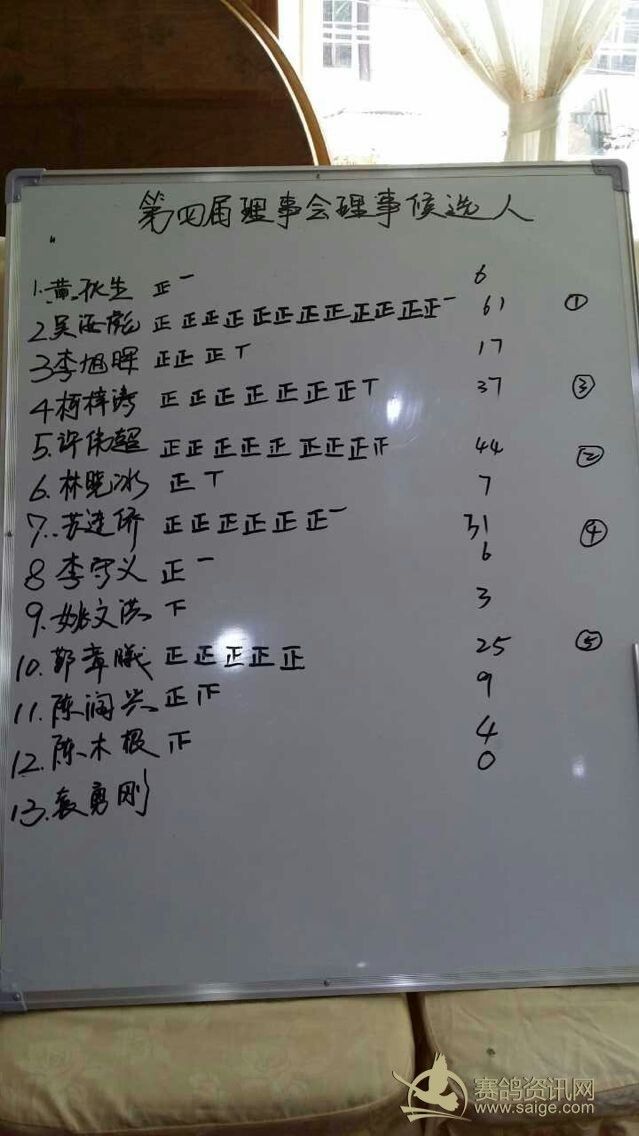 第四届理事会理事候选人
1.黄秋生 正一 6
2.吴海彪 正正正正正正正正正正正正一 61 ①
3李旭晖 正正正T 17
4.柯梓涛 正正正正正正正T 37 ③
5.许伟超 正正正正正正正正正 44 ②
6.林晓冰 正T 7
7.苏进侨 正正正正正正一 31 ④
8李守义 正一 6
9.姚文洪 下 3
10.郑章曦 正正正正正 25 ⑤
11.陈润兴 正正 9
12.陈木根 正 4
13.袁勇刚 0
赛鸽资讯网
www.saige.com